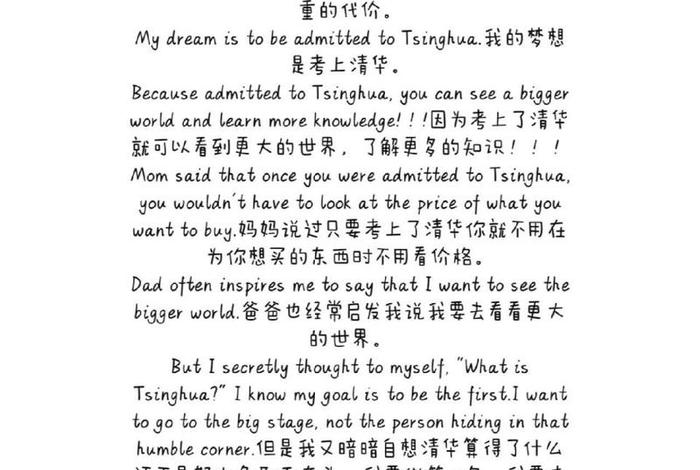 重的代价。
My dream is to be admitted to Tsinghua.我的梦想
是考上清华。
Because admitted to Tsinghua, you can see a bigger
world and learn more knowledge!!!因为考上了清华
就可以看到更大的世界，了解更多的知识！！！
Mom said that once you were admitted to Tsinghua,
you wouldn't have to look at the price of what you
want to buy.妈妈说过只要考上了清华你就不用在
为你想买的东西时不用看价格。
Dad often inspires me to say that I want to see the
bigger world.爸爸也经常启发我说我要去看看更大
的世界。
But I secretly thought to myself, "What is
Tsinghua?" I know my goal is to be the first.I want
to go to the big stage, not the person hiding in that
humble corner.但是我又暗暗自想清华算得了什么